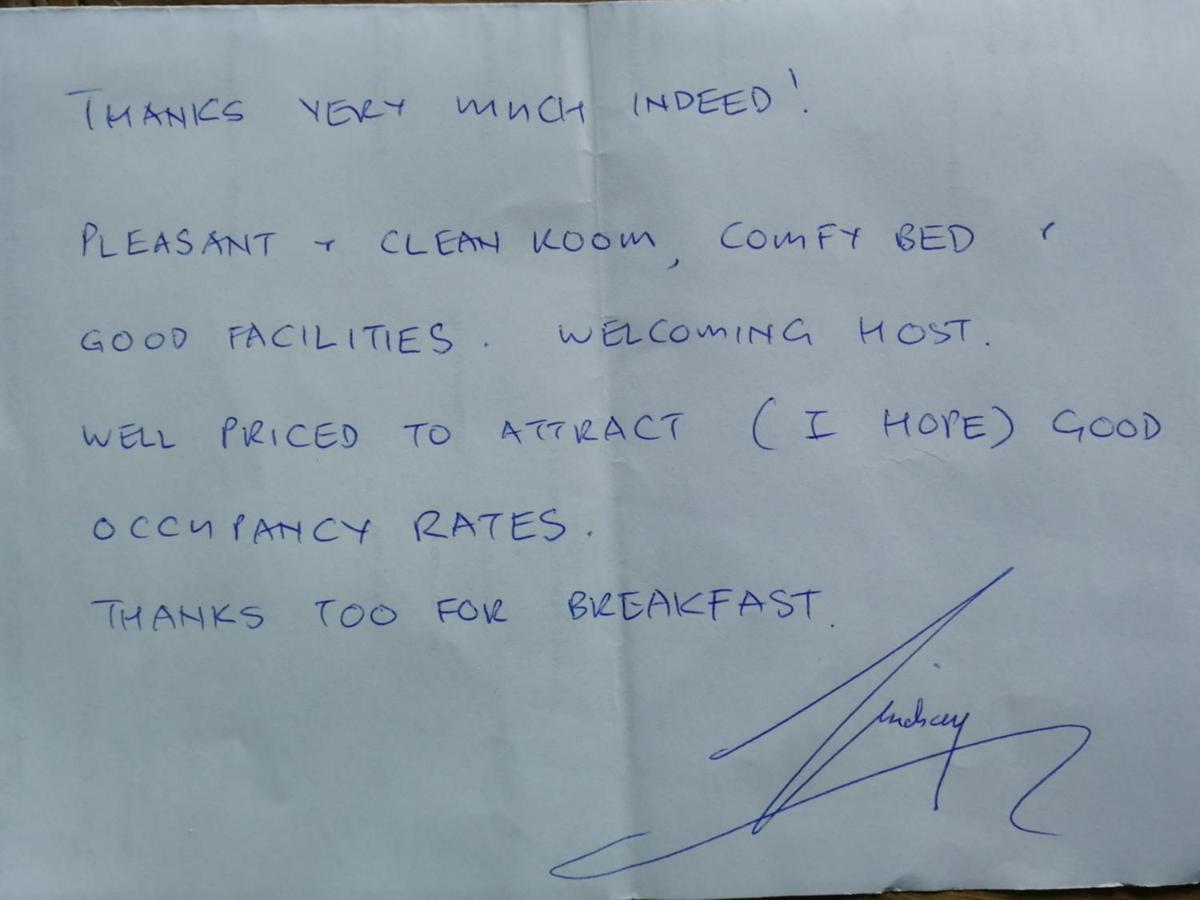 THANKS VERY MUCH INDEED!
PLEASANT + CLEAN ROOM, COMFY BED +
GOOD FACILITIES. WELCOMING HOST.
WELL PRICED TO ATTRACT (I HOPE) GOOD
OCCUPANCY RATES.
THANKS TOO FOR BREAKFAST.
Lindsay